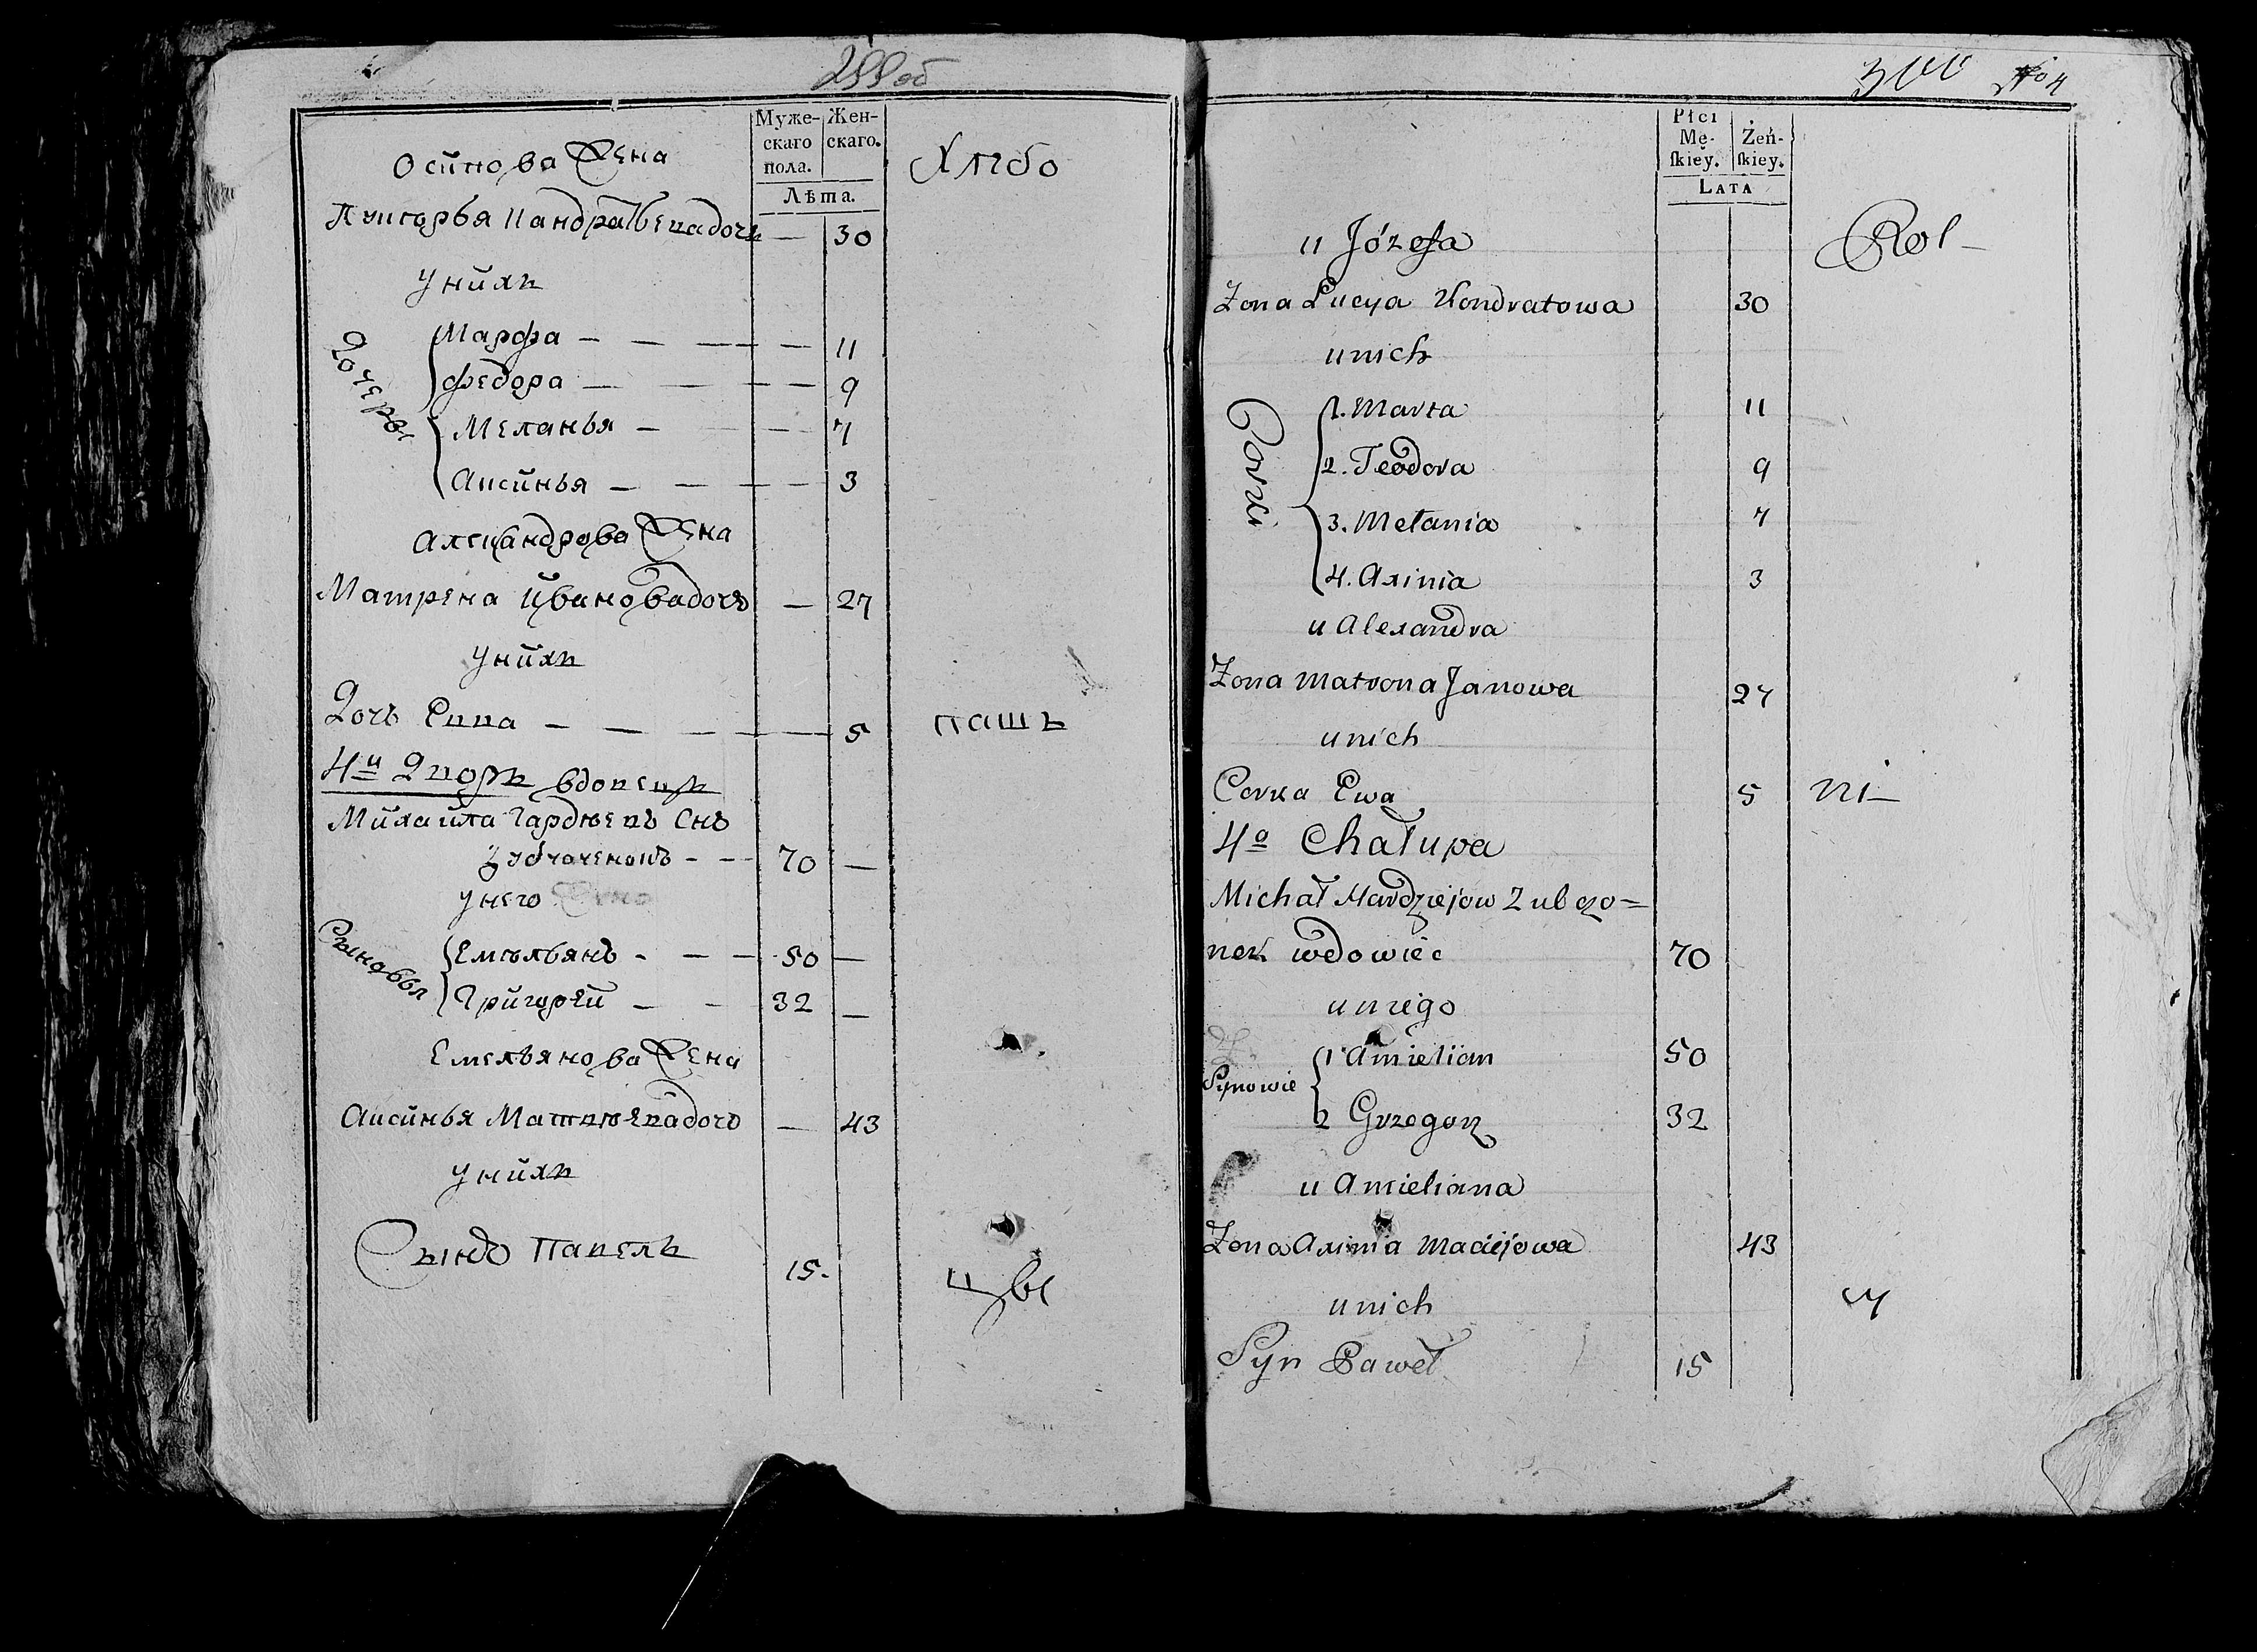 299 об
Муже-
скаго
пола.
Жен-
скаго.
Лѣта.
Осипова Жена
Хлѣбо
Лукерья Кандратьевадочь — 30
У нихъ
Дочеры
Марфа — 11
Федора — 9
Меланья — 7
Аксинья — 3
Александрова Жена
Матрена Ивановадочь — 27
У нихъ
Дочь Евва — 5
пашъ
4й Дворъ вдовецъ
Михайла Гардѣевъ Снъ
Зубчаченокъ - - 70 —
У него
Сыновья
Емельянъ - - - 50 —
Григорей — - 32 —
Емельянова Жена
Аксинья Матвѣевадочь — 43
У нихъ
Сынъ Павелъ 15.
цы
300
No 4
Płci
Mę-
skiey.
Żeń-
skiey.
LATA
u Józefa
Rol-
Zona Lucya Kondratowa 30
u nich
Corki
1. Marta 11
2. Teodora 9
3. Mełania 7
4. Axinia 3
u Alexandra
Zona Matrona Janowa 27
u nich
Corka Ewa 5
ni-
4a Chałupa
Michał Hardziejow Zubczo=
nek wdowiec 70
u niego
Synowie
1 Amielian 50
2 Grzegorz 32
u Amieliana
Zona Axinia Maciejowa 43
u nich
cy
Syn Paweł 15